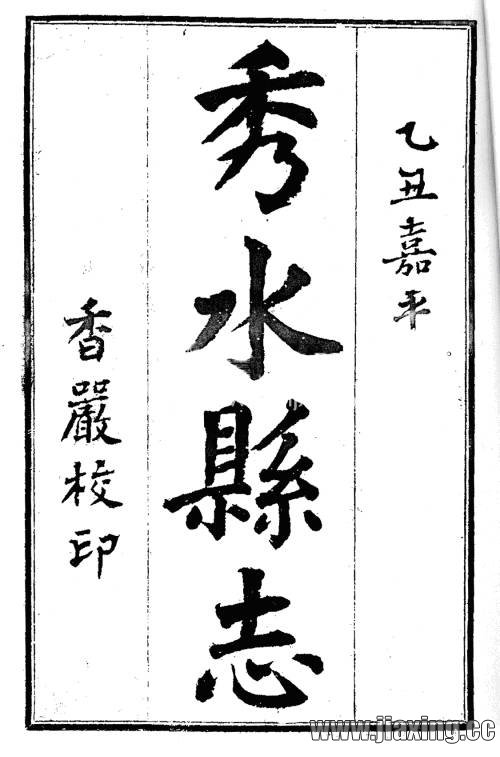 乙丑嘉平
秀水縣志
香嚴校印
www.jiaxing.cc